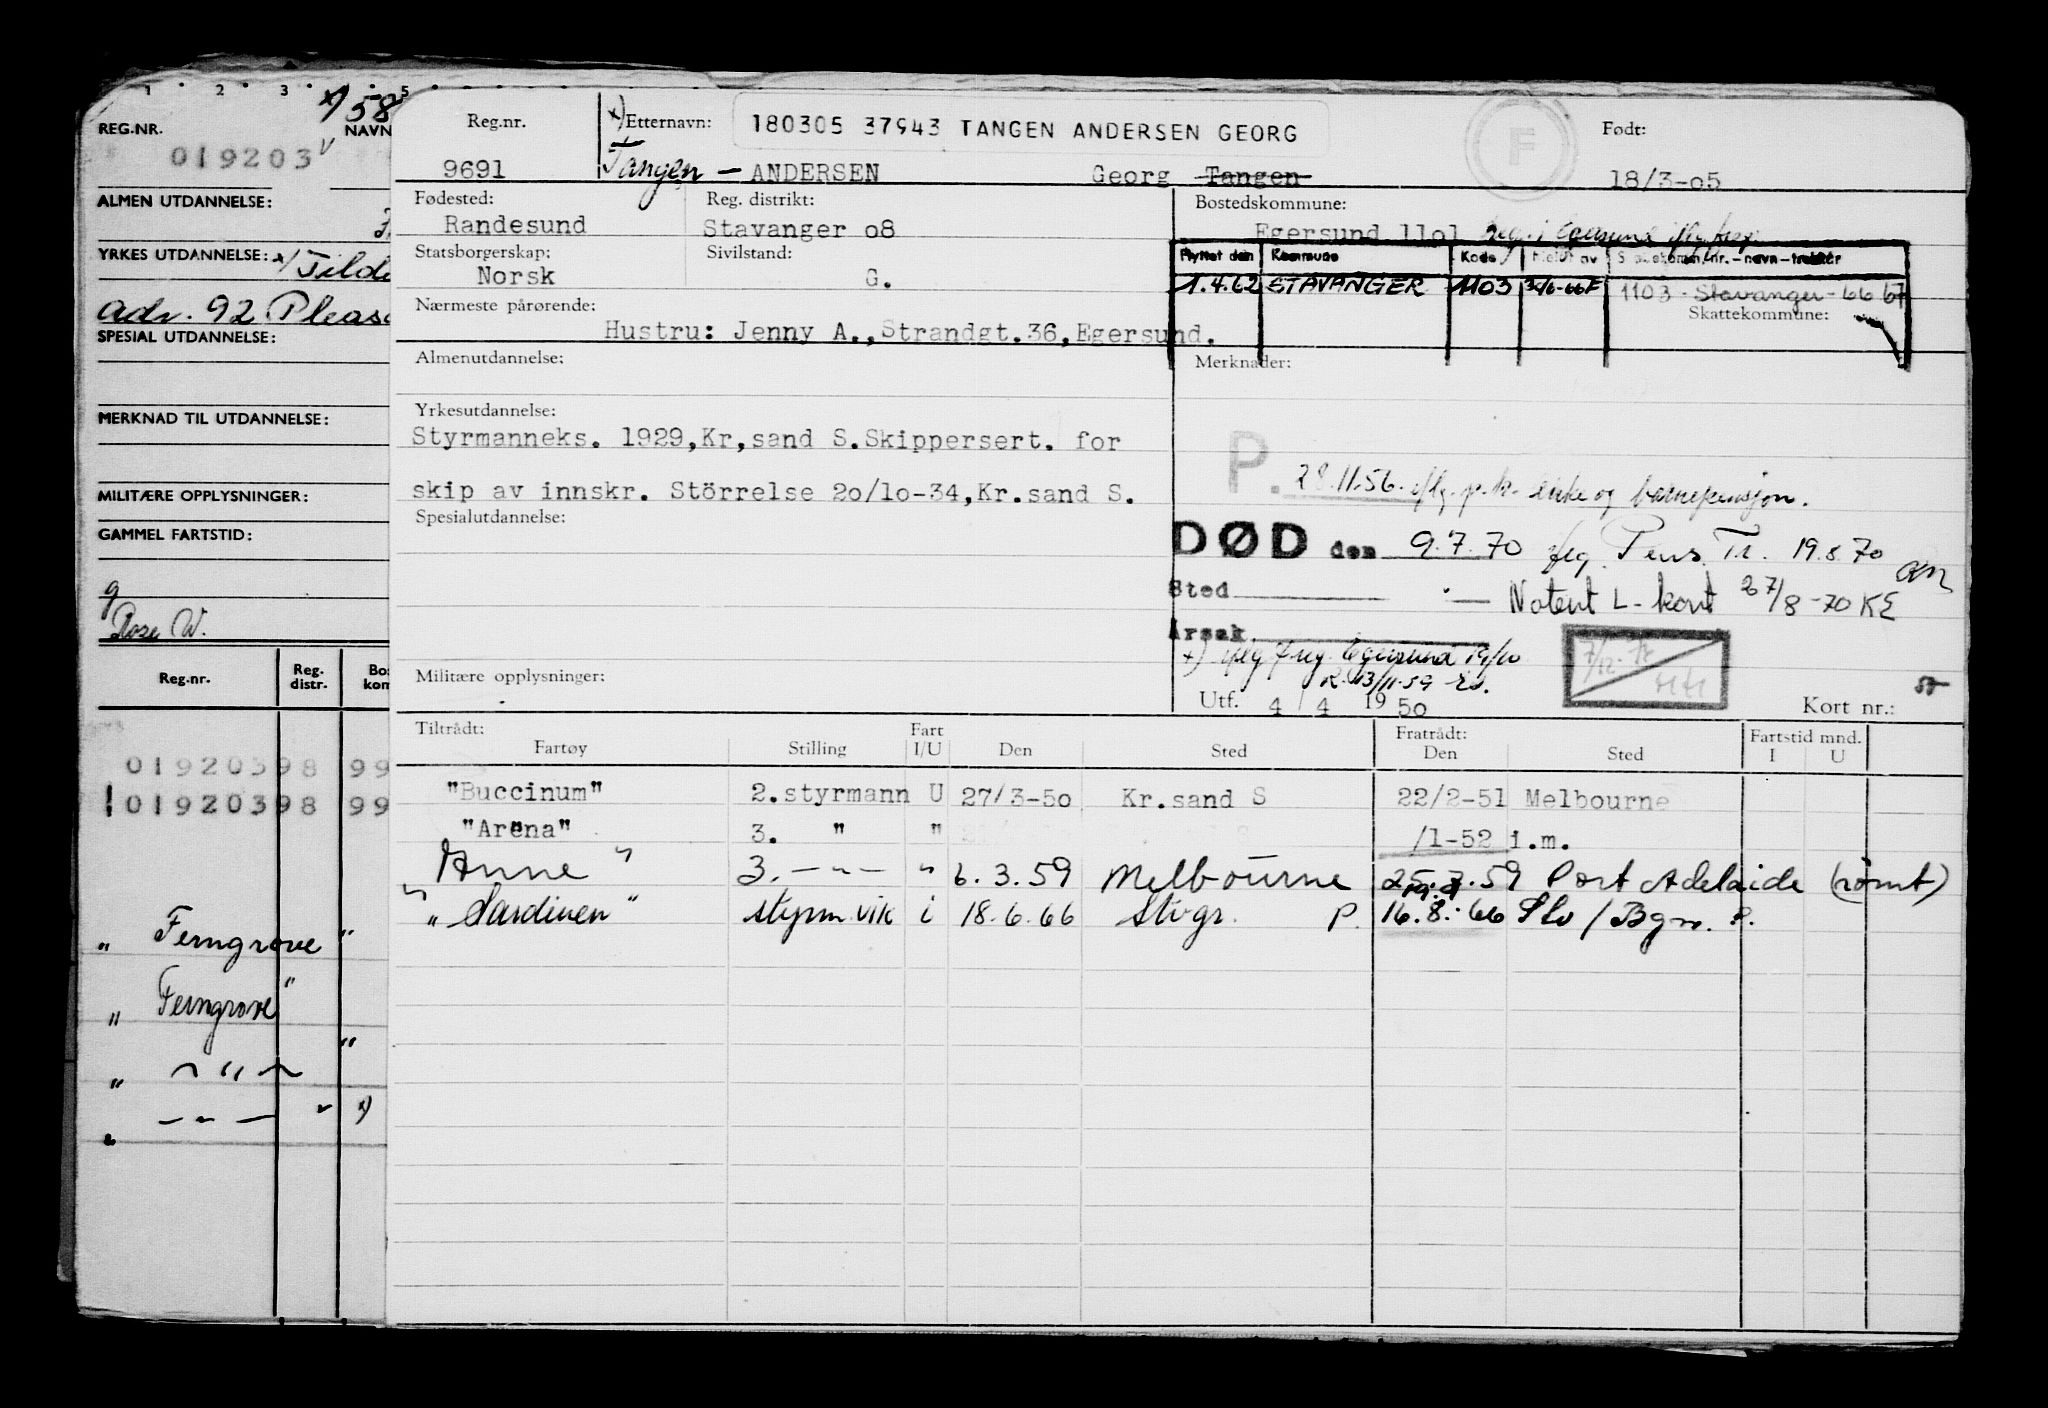 1 2 3 5
x) 58
REG.NR. NAVN
019203 v
ALMEN UTDANNELSE:
YRKES UTDANNELSE: x)
adr. 92
SPESIAL UTDANNELSE:
MERKNAD TIL UTDANNELSE:
MILITÆRE OPPLYSNINGER:
GAMMEL FARTSTID:
g
Rose W.
Reg.nr. Reg. distr.
01920398 99
01920398 99
" Ferngrove "
" Ferngrove "
" — " — "
" — " — " x)
Reg.nr. x) Etternavn: 180305 37943 TANGEN ANDERSEN GEORG F Født:
9691 Tangen - ANDERSEN Georg Tangen 18/3-05
Fødested: Reg. distrikt: Bostedskommune:
Randesund Stavanger o8 Egersund 11o1
Statsborgerskap: Sivilstand: Flyttet den Kommune Kode
Norsk G. 1.4.62 STAVANGER 1103 1103 - Stavanger - 66 67
Nærmeste pårørende: Skattekommune:
Hustru: Jenny A.,Strandgt.36,Egersund.
Almenutdannelse: Merknader:
Yrkesutdannelse:
Styrmanneks. 1929,Kr,sand S.Skippersert. for
skip av innskr. Störrelse 2o/1o-34,Kr.sand S.
P. 28.11.56. iflg. p.k. enke og barnepensjon.
Spesialutdannelse:
DØD den 9.7.70 iflg. Pens. Tr. 19.8.70
Sted — Notert L-kort 27/8-70 KE
Årsak
Militære opplysninger:
Utf. 4 / 4 19 50 Kort nr.:
Tiltrådt: Fart Fratrådt: Fartstid mnd.
Fartøy Stilling I/U Den Sted Den Sted I U
"Buccinum" 2.styrmann U 27/3-5o Kr.sand S 22/2-51 Melbourne
"Arena" 3. " " /1-52 i.m.
" Anne " 3. — " — " 6.3.59 Melbourne 25.3.59 Port Adelaide (rømt)
" Sardinen " styrm. vik i 18.6.66 Stvgr. P. 16.8.66 Slo / Bgn. P.